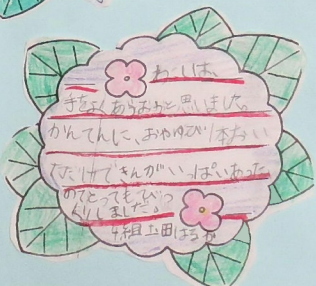 わたしは、
手をよくあらおおと思しました。
かんてんに、おやゆび1本おい
ただけできんがいっぱいあった
のでとってもびっ
くりしました。
4組 土田はるか